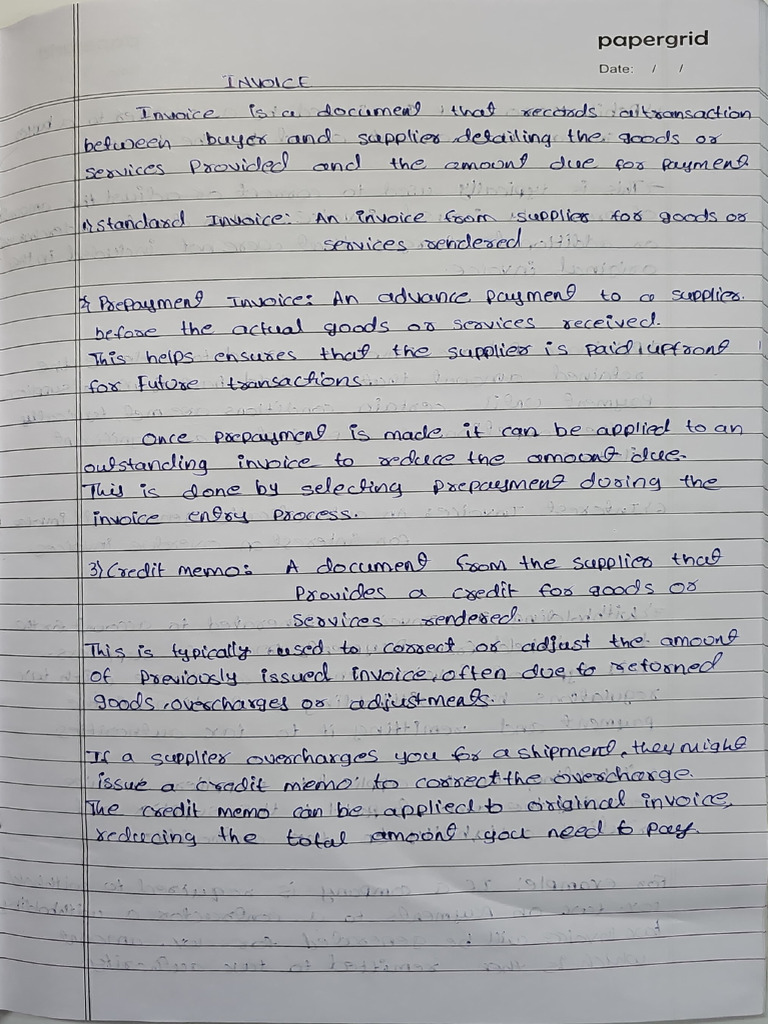 papergrid
Date: / /
INVOICE
Invoice is a document that records a transaction
between buyer and supplier detailing the goods or
services Provided and the amount due for payment
1) Standard Invoice: An invoice from supplier for goods or
services rendered.
2) Prepayment Invoice: An advance payment to a supplier
before the actual goods or services received.
This helps ensures that the supplier is paid upfront
for Future transactions.
Once prepayment is made it can be applied to an
outstanding invoice to reduce the amount due.
This is done by selecting prepayment during the
invoice entry process.
3) Credit memo: A document from the supplier that
Provides a credit for goods or
services rendered.
This is typically used to correct or adjust the amount
of Previously issued invoice, often due to returned
goods, overcharges or adjustments.
If a supplier overcharges you for a shipment, they might
issue a credit memo to correct the overcharge.
The credit memo can be applied to original invoice,
reducing the total amount you need to pay.